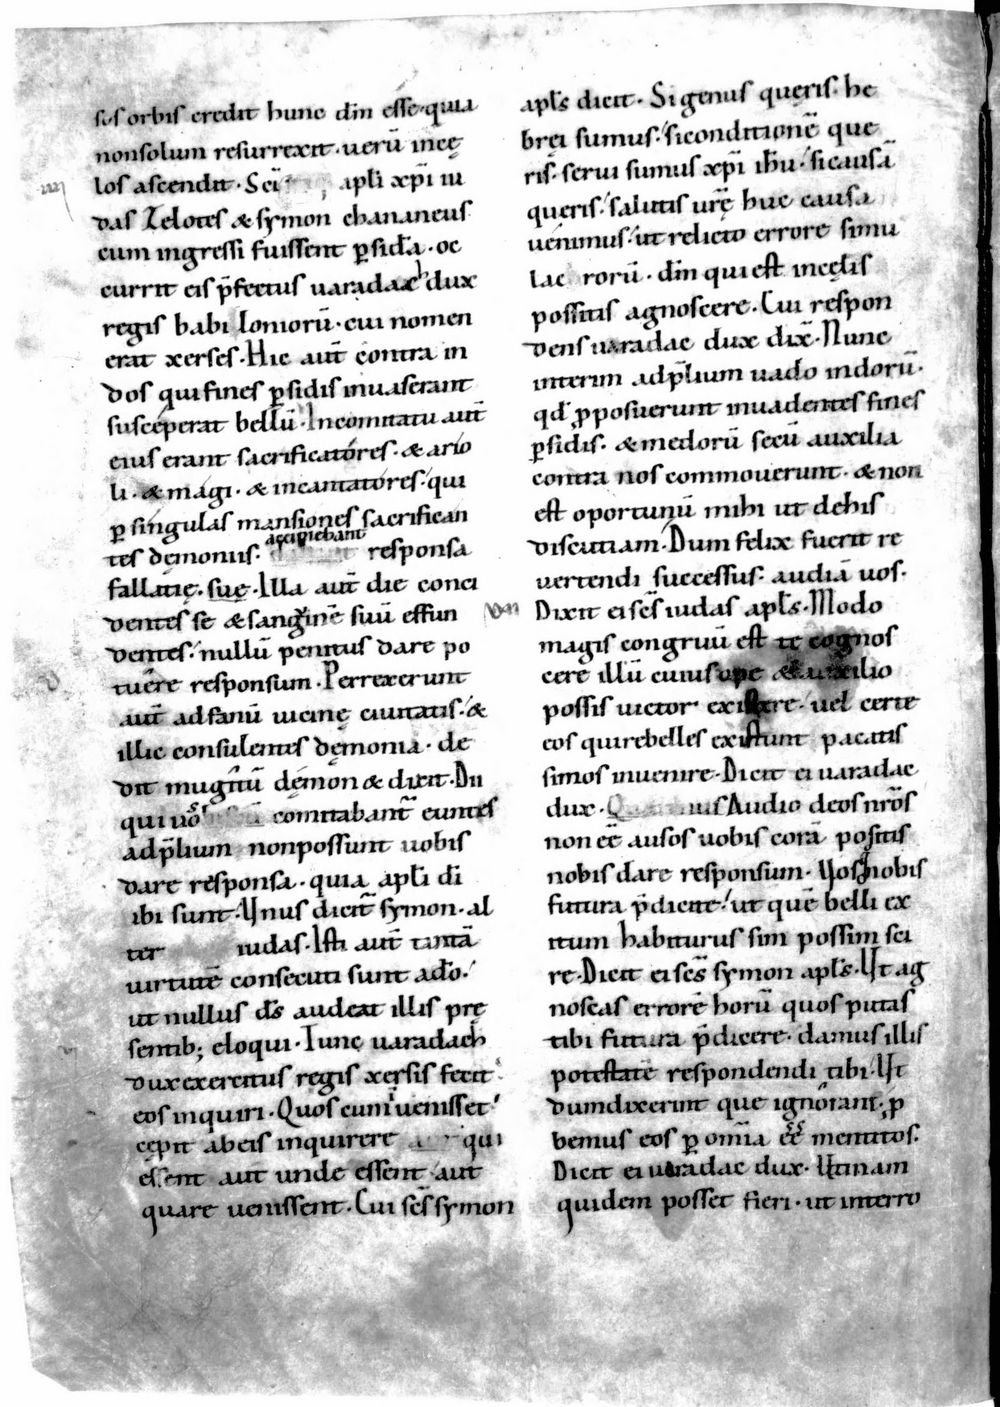 sus orbis credit hunc dm̄ esse· quia
non solum resurrexit· uerū in cę
los ascendit· Sc̄i apl̄i xp̄i iu
das Zelotes & symon chananeus
cum ingressi fuissent p̱sida· oc
currit eis p̄fectus uaradach dux
regis babiloniorū· cui nomen
erat xerses· Hic aut̄ contra in
dos qui fines p̱sidis inuaserant
susceperat bellū· In comitatu aut̄
eius erant sacrificatores· & ario
li· & magi· & incantatores· qui
p̱ singulas mansiones sacrifican
tes demoniis· accipiebant responsa
fallatię suę· Illa aut̄ die conci
dentes se & sanguinē suū effun
dentes· nullū penitus dare po
tuere responsum· Perrexerunt
aut̄ ad fanū uicinę ciuitatis· &
illic consulentes dęmonia· de
dit mugitū dęmon & dicit· Dii
qui uos comitabant̄ euntes
ad p̄lium non possunt uobis
dare responsa· quia apl̄i dī
ibi sunt· Vnus dicit̄ symon· al
ter iudas· Isti aut̄ tantā
uirtutē consecuti sunt a dō·
ut nullus ds̄ audeat illis prę
sentib; eloqui· Tunc uaradach
dux exercitus regis xersis fecit
eos inquiri· Quos cum inuenisset
cępit ab eis inquirere qui
essent aut unde essent aut
quare uenissent· Cui sc̄s symon
apl̄s dicit· Si genus queris· he
brei sumus· si conditionē que
ris· serui sumus xp̄i ih̄u· si causā
queris· salutis ur̄ę huc causa
uenimus· ut relicto errore simu
lac rorū· dm̄ qui est in cęlis
possitis agnoscere· Cui respon
dens uaradac dux dix̄· Nunc
interim ad p̄lium uado indorū·
qd̄ p̱posuerunt inuadentes fines
p̱sidis· & medorū secū auxilia
contra nos commouerunt· & non
est oportunū mihi ut de his
discutiam· Dum felix fuerit re
uertendi successus· audiā uos·
Dixit ei sc̄s iudas apl̄s· Modo
magis congruū est te cognos
cere illū cuius ope & auxilio
possis uictor existere· uel certe
eos qui rebelles existunt pacatis
simos inuenire· Dicit ei uaradac
dux· Audio deos nr̄os
non eē ausos uobis corā positis
nobis dare responsum· Vos nobis
futura p̄dicite· ut quē belli ex
itum habiturus sim possim sci
re· Dicit ei sc̄s symon apl̄s· Vt ag
noscas errorē horū quos putas
tibi futura p̄dicere· damus illis
potestatē respondendi tibi· Vt
dum dixerint que ignorant· p̱
bemus eos p̱ omīa eē mentitos·
Dicit ei uaradac dux· Vtinam
quidem posset fieri· ut interro